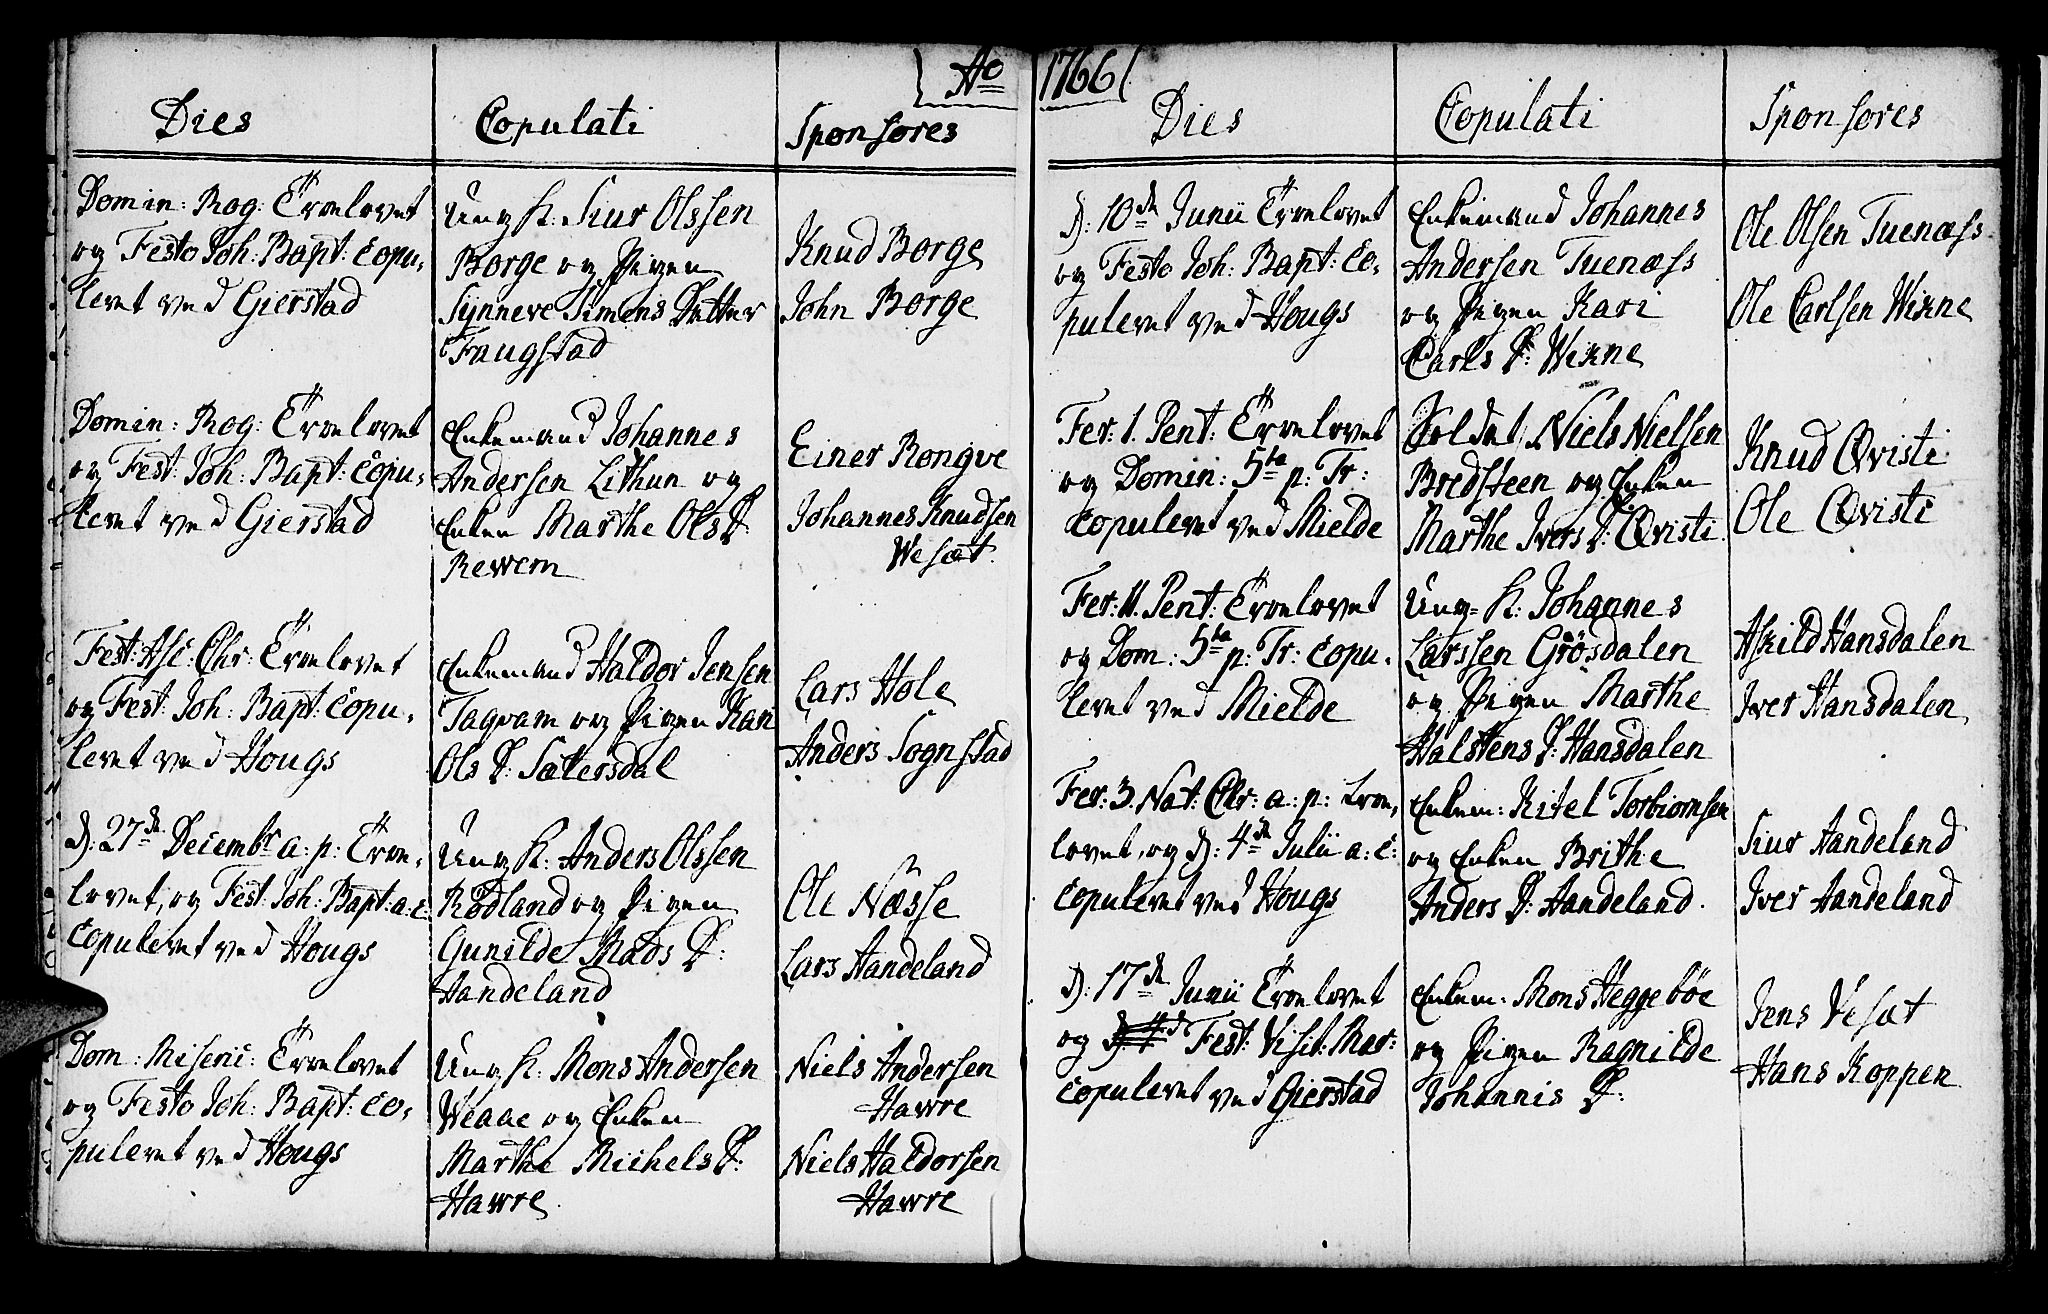 Ao 1766
Dies
Copulati
Sponsores
Domin: Rog: Troelovet
og Festo Joh: Bapt: Copu-
leret ved Gierstad
Ung K: Siur Olssen
Borge og Pigen
Synneve Simens Datter
Faugstad
Knud Borge
John Borge
Domin: Rog: Troelovet
og Fest: Joh: Bapt: Copu-
leret ved Gierstad
Enkemand Johannes
Andersen Lithun og
Enken Marthe Ols D:
Rewem
Einer Rongve
Johannes Knudsen
Wesæt.
Fest: Asc: Chr: Troelovet
og Fest: Joh: Bapt: Copu-
leret ved Hougs
Enkemand Haldor Jensen
Taqvam og Pigen Kari
Ols D: Sætersdal
Lars Hole
Anders Sognstad
D: 27de Decembr a: p: Troe-
lovet, og Fest: Joh: Bapt: a: c:
Copuleret ved Hougs
Ung K: Anders Olssen
Rødland og Pigen
Gunilde Mads D:
Aandeland
Ole Næsse
Lars Aandeland
Dom: Miseric: Troelovet
og Festo Joh: Bapt: Co-
puleret ved Hougs
Ung K: Mons Andersen
Weaae og Enken
Marthe Michels D:
Hawre
Niels Andersen
Hawre
Niels Haldorsen
Hawre
Dies
Copulati
Sponsores
D: 10de Junii Troelovet
og Festo Joh: Bapt: Co-
puleret ved Hougs
Enkemand Johannes
Andersen Tuenæss
og Pigen Kari
Carls D: Wikne
Ole Olsen Tuenæss
Ole Carlsen Wikne
Fer: 1. Pent: Troelovet
og Domin: 5ta p: Tr:
Copuleret ved Mielde
Soldat: Niels Nielsen
Bredsteen og Enken
Marthe Ivers D: Qvisti
Knud Qvisti
Ole Qvisti
Fer: 11. Pent: Troelovet
og Dom: 5ta p: Tr: Copu-
leret ved Mielde
Ung- K: Johannes
Larssen Grøsdalen
og Pigen Marthe
Halstens D: Hansdalen
Askild Hansdalen
Iver Hansdalen
Fer: 3. Nat: Chr: a: p: troe-
lovet, og D: 4de Julii a: c:
Copuleret ved Hougs
Enkem: Kitel Torbiornsen
og Enken Brithe
Anders D: Aandeland
Siur Aandeland
Iver Aandeland
D: 17de Junii Troelovet
og Fest: Visit: Mar:
Copuleret ved Gierstad
Enkem: Mons Heggebøe
og Pigen Ragnilde
Johannis D:
Jens Vesæt
Hans Koppen